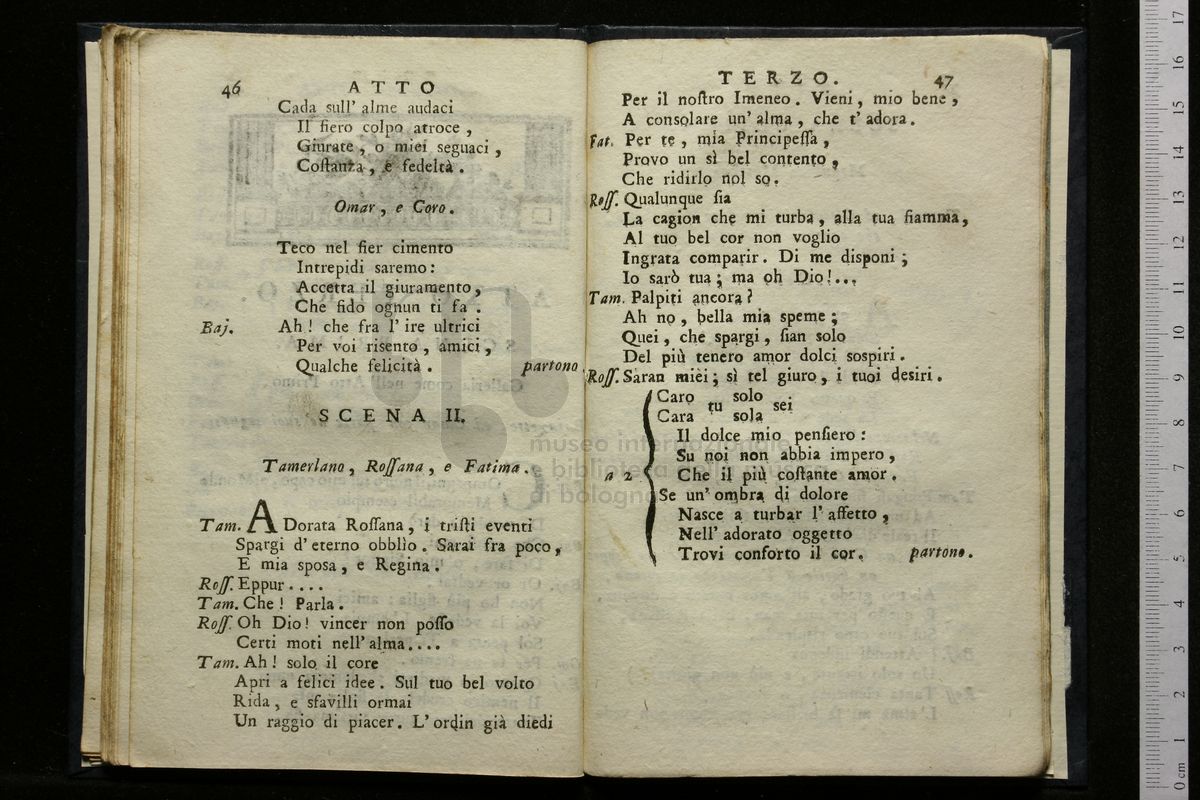 46 ATTO
Cada sull' alme audaci
Il fiero colpo atroce ,
Giurate , o miei seguaci ,
Costanza , e fedeltà .
Omar , e Coro .
Teco nel fier cimento
Intrepidi saremo :
Accetta il giuramento ,
Che fido ognun ti fa .
Baj. Ah ! che fra l' ire ultrici
Per voi risento , amici ,
Qualche felicità . partono
SCENA II.
Tamerlano , Rossana , e Fatima .
Tam. ADorata Rossana , i tristi eventi
Spargi d' eterno obblìo . Sarai fra poco ,
E mia sposa , e Regina .
Ross. Eppur . . . .
Tam. Che ! Parla .
Ross. Oh Dio ! vincer non posso
Certi moti nell' alma . . . .
Tam. Ah ! solo il core
Apri a felici idee . Sul tuo bel volto
Rida , e sfavilli ormai
Un raggio di piacer . L' ordin già diedi
TERZO. 47
Per il nostro Imeneo . Vieni , mio bene ,
A consolare un' alma , che t' adora .
Fat. Per te , mia Principessa ,
Provo un sì bel contento ,
Che ridirlo nol so .
Ross. Qualunque sia
La cagion che mi turba , alla tua fiamma ,
Al tuo bel cor non voglio
Ingrata comparir . Di me disponi ;
Io sarò tua ; ma oh Dio ! . . .
Tam. Palpiti ancora ?
Ah no , bella mia speme ;
Quei , che spargi , sian solo
Del più tenero amor dolci sospiri .
Ross. Saran miei ; sì tel giuro , i tuoi desiri .
Caro tu solo sei
Cara sola
Il dolce mio pensiero :
Su noi non abbia impero ,
a 2 Che il più costante amor .
Se un' ombra di dolore
Nasce a turbar l' affetto ,
Nell' adorato oggetto
Trovi conforto il cor . partono .
museo internazionale
e biblioteca della musica
di bologna
0 cm 1 2 3 4 5 6 7 8 9 10 11 12 13 14 15 16 17